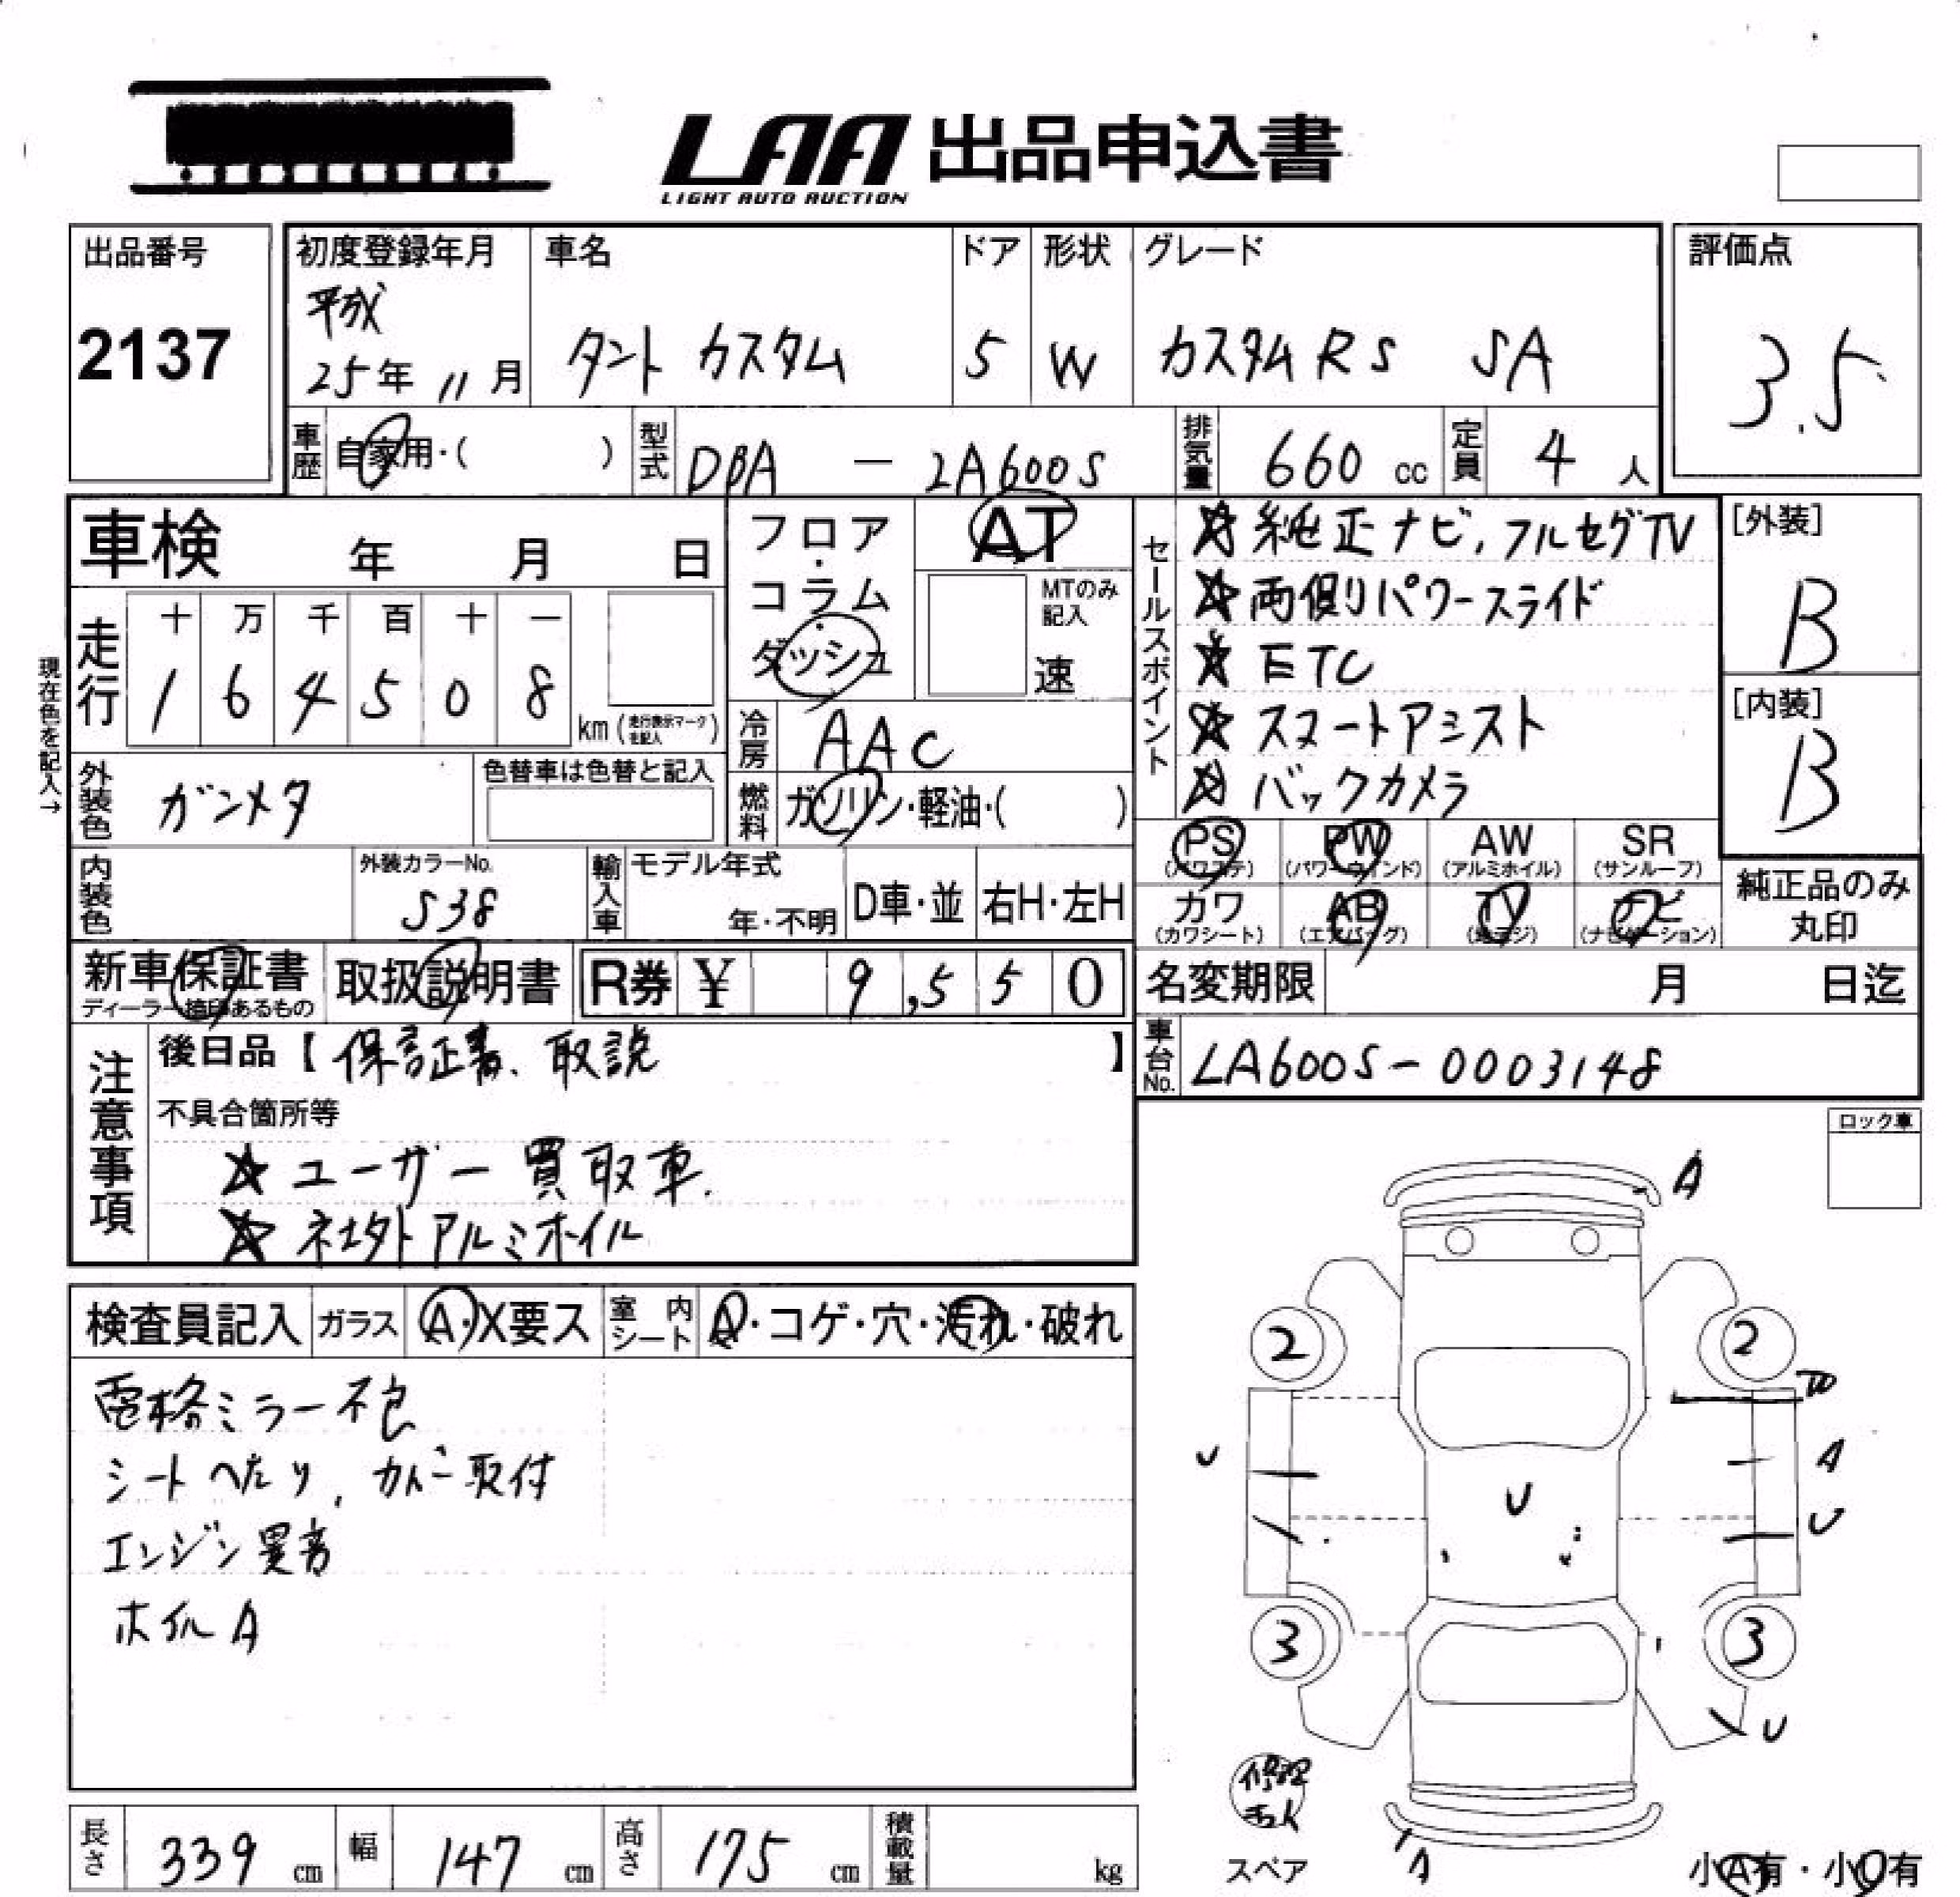 LAA 出品申込書
LIGHT AUTO AUCTION
出品番号
2137
初度登録年月
平成
25年 11月
車名
タント カスタム
ドア
5
形状
W
グレード
カスタムRS SA
評価点
3.5
車歴 自家用・( )
型式 DBA - LA600S
排気量 660 cc
定員 4 人
車検 年 月 日
フロア・コラム・ダッシュ
AT
MTのみ記入
速
セールスポイント
☆純正ナビ,フルセグTV
☆両側パワースライド
☆ETC
☆スマートアシスト
☆バックカメラ
[外装]
B
[内装]
B
現在色を記入→
走行
十 万 千 百 十 一
1 6 4 5 0 8
km (走行表示マークを記入)
冷房 AAC
燃料 ガソリン・軽油・( )
外装色 ガンメタ
色替車は色替と記入
内装色
外装カラーNo.
S38
輸入車
モデル年式
年・不明
D車・並
右H・左H
PS (パワステ)
PW (パワーウインド)
AW (アルミホイル)
SR (サンルーフ)
カワ (カワシート)
AB (エアバッグ)
TV (地デジ)
ナビ (ナビゲーション)
純正品のみ丸印
新車保証書
ディーラー捺印あるもの
取扱説明書
R券 ¥ 9,550
名変期限 月 日迄
車台No. LA600S-0003148
注意事項
後日品【保証書、取説】
不具合箇所等
☆ユーザー買取車.
☆社外アルミホイル
ロック車
検査員記入
ガラス A・X要ス
室内シート A・コゲ・穴・汚れ・破れ
電格ミラー不良
シートへたり,カバー取付
エンジン異音
ホイルA
A
2
2
W
U
A
U
U
3
3
U
A
スペア
修理キット
小A有・小U有
長さ 339 cm
幅 147 cm
高さ 175 cm
積載量 kg